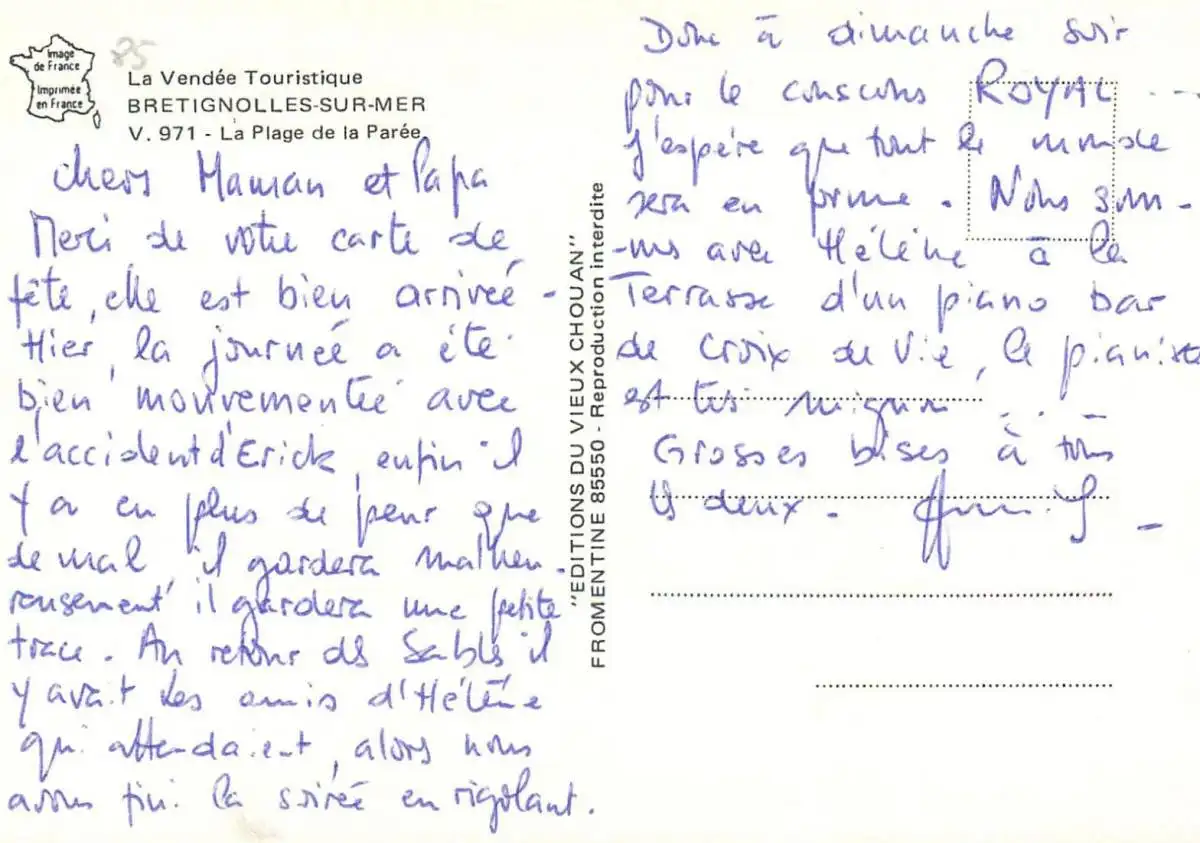 Image
de France
Imprimée
en France
85
La Vendée Touristique
BRETIGNOLLES-SUR-MER
V. 971 - La Plage de la Parée
chers Maman et Papa
Merci de votre carte de
fête, elle est bien arrivée -
Hier, la journée a été
bien mouvementée avec
l'accident d'Erick, enfin il
y a eu plus de peur que
de mal, il gardera malheu-
reusement il gardera une petite
trace. Au retour des Sables il
y avait les amis d'Hélène
qui attendaient, alors nous
avons fini la soirée en rigolant.
"EDITIONS DU VIEUX CHOUAN"
FROMENTINE 85550 - Reproduction interdite
Donc à dimanche soir
pour le couscous ROYAL ...
J'espère que tout le monde
sera en forme. Nous som-
-mes avec Hélène à la
Terrasse d'un piano bar
de Croix de Vie, le pianiste
est très mignon ...
Grosses bises à tous
les deux.